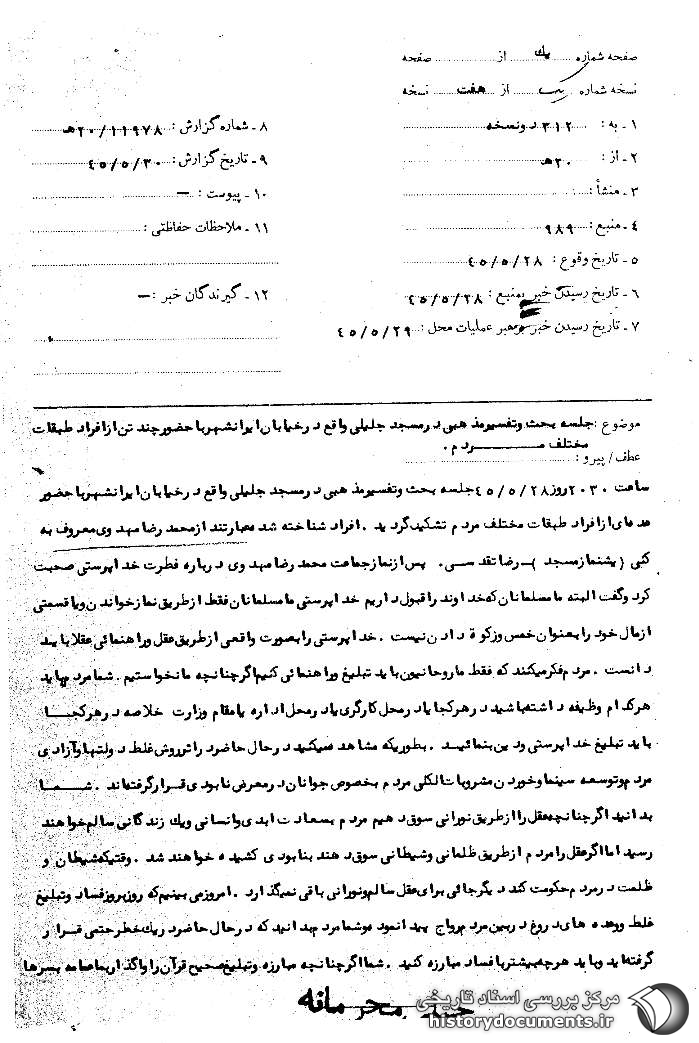 صفحه شماره یک از صفحه
نسخه شماره یک از هفت نسخه
۱ ـ به : ۳۱۲ دونسخه
۲ـ از : ۲۰هـ
۳ ـ منشأ :
۴ ـ منبع : ۹۸۹
۵ ـ تاریخ وقوع : ۴۵/۵/۲۸
۶ ـ تاریخ رسیدن خبر بمنبع : ۴۵/۵/۲۸
۷ ـ تاریخ رسیدن خبر برهبر عملیات محل : ۴۵/۵/۲۹
۸ ـ شماره گزارش : ۲۰/۱۱۹۷۸هـ
۹ ـ تاریخ گزارش : ۴۵/۵/۳۰
۱۰ ـ پیوست : —
۱۱ ـ ملاحظات حفاظتی :
۱۲ ـ گیرندگان خبر : —
موضوع : جلسه بحث وتفسیرمذهبی درمسجد جلیلی واقع درخیابان ایرانشهرباحضورچند تن ازافراد طبقات
مختلف مـــــردم .
عطف / پیرو :
ساعت ۲۰۳۰روز۴۵/۵/۲۸جلسه بحث وتفسیرمذهبی درمسجد جلیلی واقع درخیابان ایرانشهرباحضور
عده ای ازافراد طبقات مختلف مردم تشکیل گردید . افراد شناخته شده عبارتند ازمحمد رضا مهدوی معروف به
کنی (پیشنمازمسجد )ـ رضا تقدسی . پس ازنمازجماعت محمد رضا مهدوی درباره فطرت خداپرستی صحبت
کرد وگفت البته ما مسلمانان که خداوند راقبول داریم خداپرستی ما مسلمانان فقط ازطریق نمازخواندن ویاقسمتی
ازمال خود رابعنوان خمس وزکوة دادن نیست . خداپرستی رابصورت واقعی ازطریق عقل وراهنمائی عقل باید
دانست . مردم فکرمیکنند که فقط ما روحانیون باید تبلیغ وراهنمائی کنیم اگرچنانچه ما نخواستیم . شما مردم باید
هرکدام وظیفه داشته باشید درهرکجا یا درمحل کارگری یا درمحل اداره یا مقام وزارت خلاصه درهرکجــا
باید تبلیغ خداپرستی ودین بنمائیــد . بطوریکه مشاهده میکنید درحال حاضر دراثرروش غلط دولتها وآزادی
مردم وتوسعه سینما وخوردن مشروبات الکلی مردم بخصوص جوانان درمعرض نابودی قرارگرفته اند . شــما
بدانید اگرچنانچه عقل را ازطریق نورانی سوق دهیم مردم بسعادت ابدی وانسانی ویک زندگانی سالم خواهند
رسید اما اگرعقل را مردم ازطریق ظلمانی وشیطانی سوق دهند بنابودی کشیده خواهند شد . وقتیکه شیطان و
ظلمت درمردم حکومت کند دیگرجائی برای عقل سالم ونورانی باقی نمیگذارد . امروزمی بینیم که روزبروزفساد وتبلیغ
غلط ووعده های دروغ دربین مردم رواج پیدا نموده وشما مردم بدانید که درحال حاضر دریک خطرحتمی قرار
گرفته اید وباید هرچه بیشتربافساد مبارزه کنید . شما اگرچنانچه مبارزه وتبلیغ صحیح قرآن راواگذاربما عمامه بسرها
محرمانه
مرکز بررسی اسناد تاریخی
historydocuments.ir